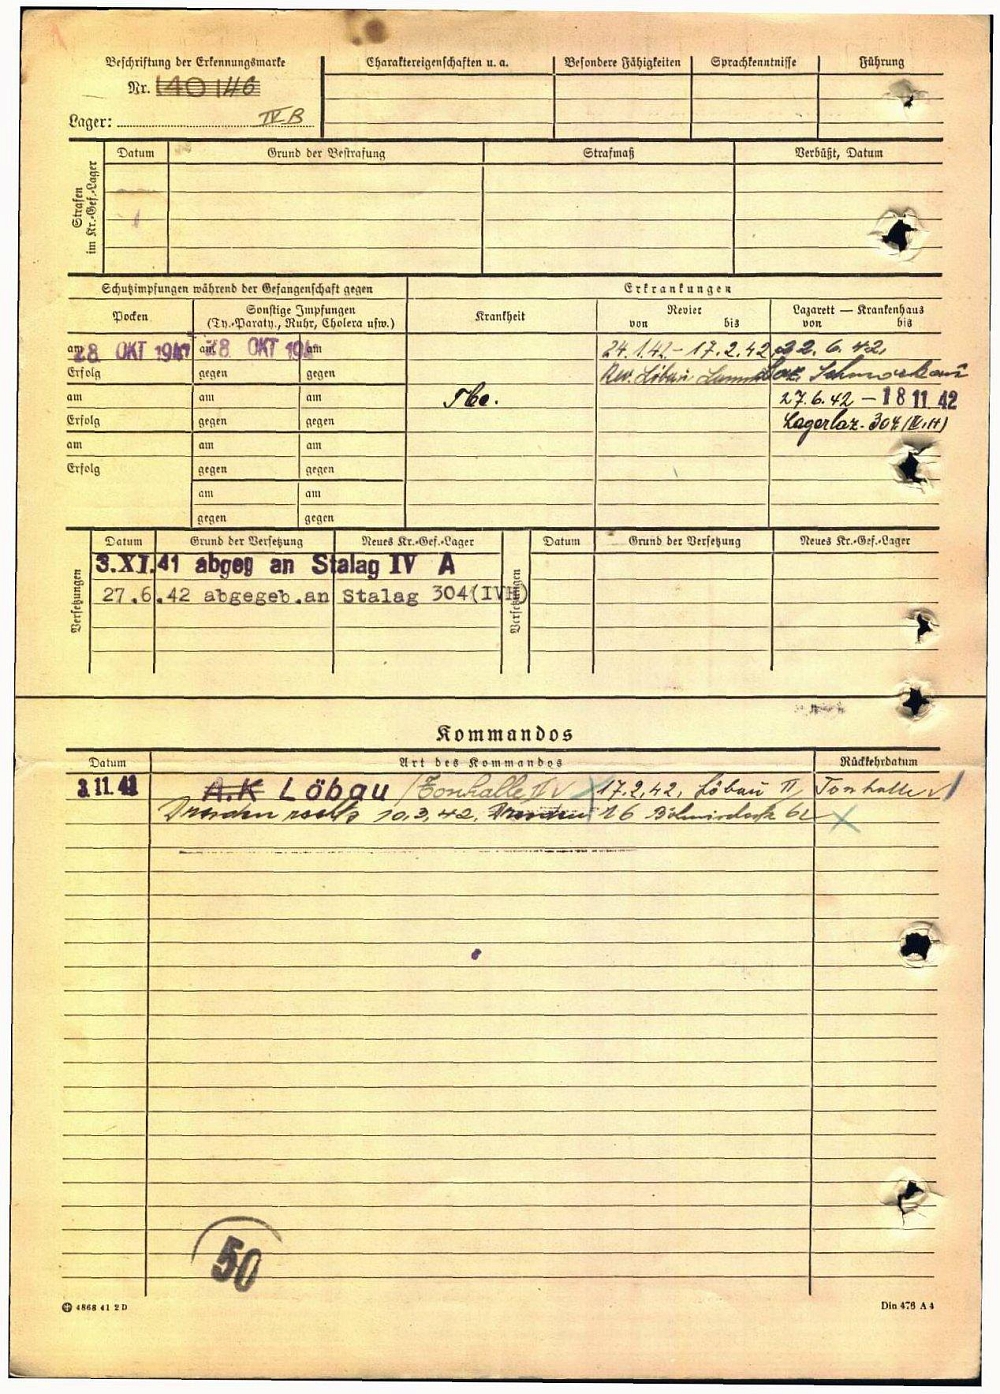 Beschriftung der Erkennungsmarke Charaktereigenschaften u. a. Besondere Fähigkeiten Sprachkenntnisse Führung
Nr. 140 146
Lager: IV B
Strafen im Kr.-Gef.-Lager Datum Grund der Bestrafung Strafmaß Verbüßt, Datum
Schutzimpfungen während der Gefangenschaft gegen Erkrankungen
Pocken Sonstige Impfungen Krankheit Revier Lazarett — Krankenhaus
(Ty.-Paraty., Ruhr, Cholera usw.) von bis von bis
am 28 OKT 1941 am 28 OKT 194 am 24.1.42 - 17.2.42 22.6.42.
Erfolg gegen gegen Rev. Löbau Laz.
am am am Tbc. 27.6.42 — 18 11 42
Erfolg gegen gegen Lagerlaz. 304 (IV.H)
am am am
Erfolg gegen gegen
am am
gegen gegen
Versetzungen Datum Grund der Versetzung Neues Kr.-Gef.-Lager Versetzungen Datum Grund der Versetzung Neues Kr.-Gef.-Lager
3.XI.41 abgeg an Stalag IV A
27.6.42 abgegeb.an Stalag 304(IVH)
Kommandos
Datum Art des Kommandos Rückkehrdatum
3.11.41 A.K Löbau Tonhalle 17.2.42, Löbau II, Tonhalle
Dresden rechts 10.3.42. Dresden 16
50
4868 41 2 D Din 476 A 4